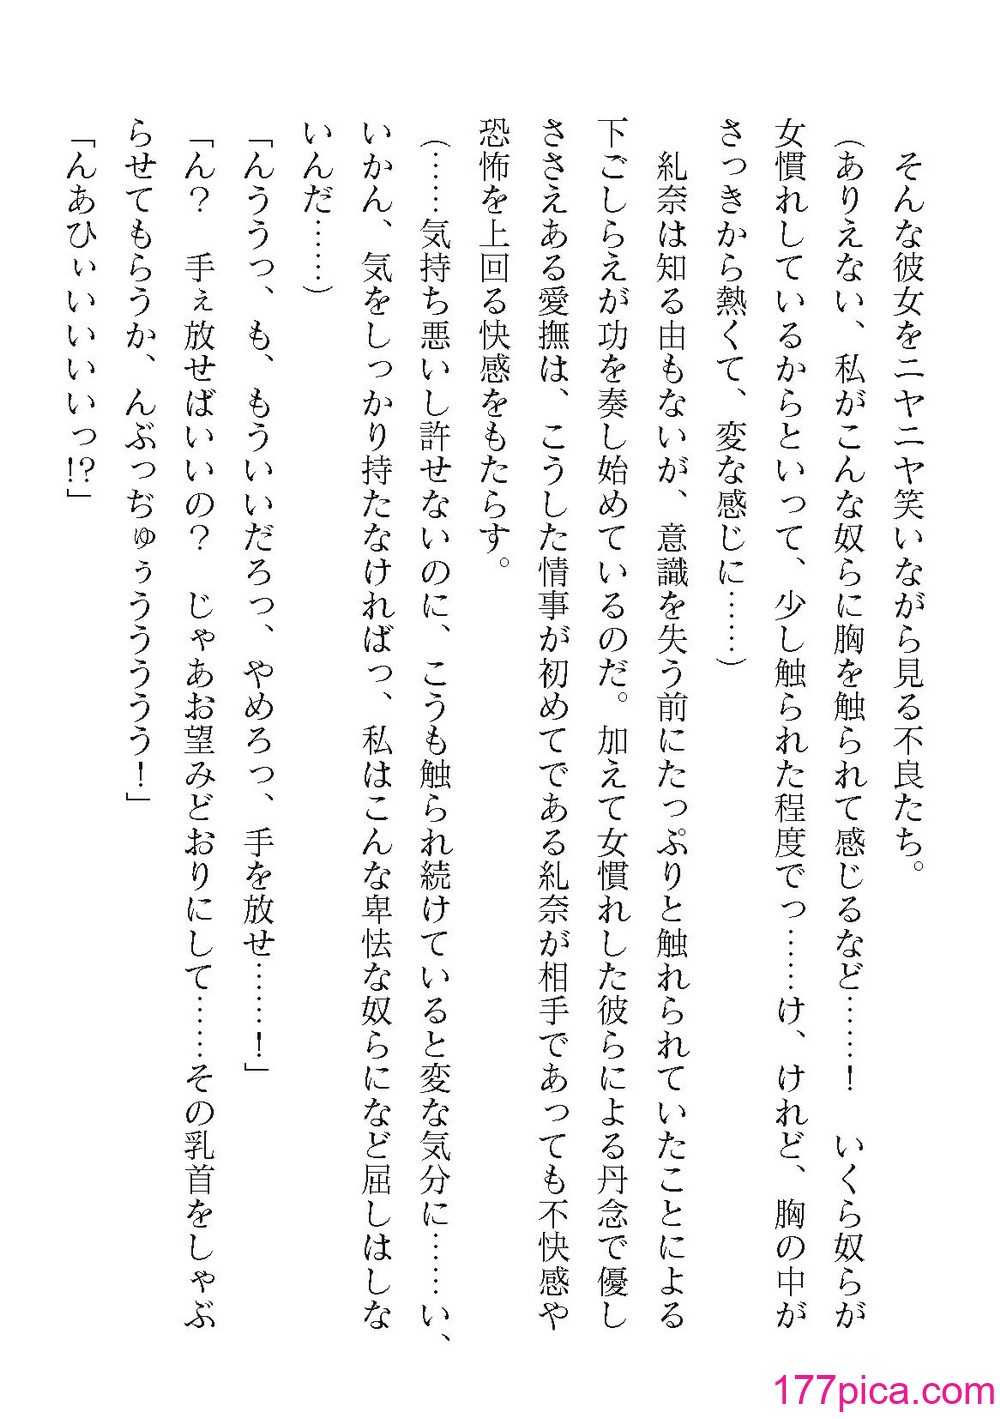 そんな彼女をニヤニヤ笑いながら見る不良たち。
(ありえない、私がこんな奴らに胸を触られて感じるなど……!　いくら奴らが
女慣れしているからといって、少し触られた程度でっ……け、けれど、胸の中が
さっきから熱くて、変な感じに……)
糺奈は知る由もないが、意識を失う前にたっぷりと触れられていたことによる
下ごしらえが功を奏し始めているのだ。加えて女慣れした彼らによる丹念で優し
ささえある愛撫は、こうした情事が初めてである糺奈が相手であっても不快感や
恐怖を上回る快感をもたらす。
(……気持ち悪いし許せないのに、こうも触られ続けていると変な気分に……い、
いかん、気をしっかり持たなければっ、私はこんな卑怯な奴らになど屈しはしな
いんだ……)
「んううっ、も、もういいだろっ、やめろっ、手を放せ……!」
「ん?　手ぇ放せばいいの?　じゃあお望みどおりにして……その乳首をしゃぶ
らせてもらうか、んぶっぢゅぅううううう!」
「んあひぃいいいいっ!?」
177pica.com